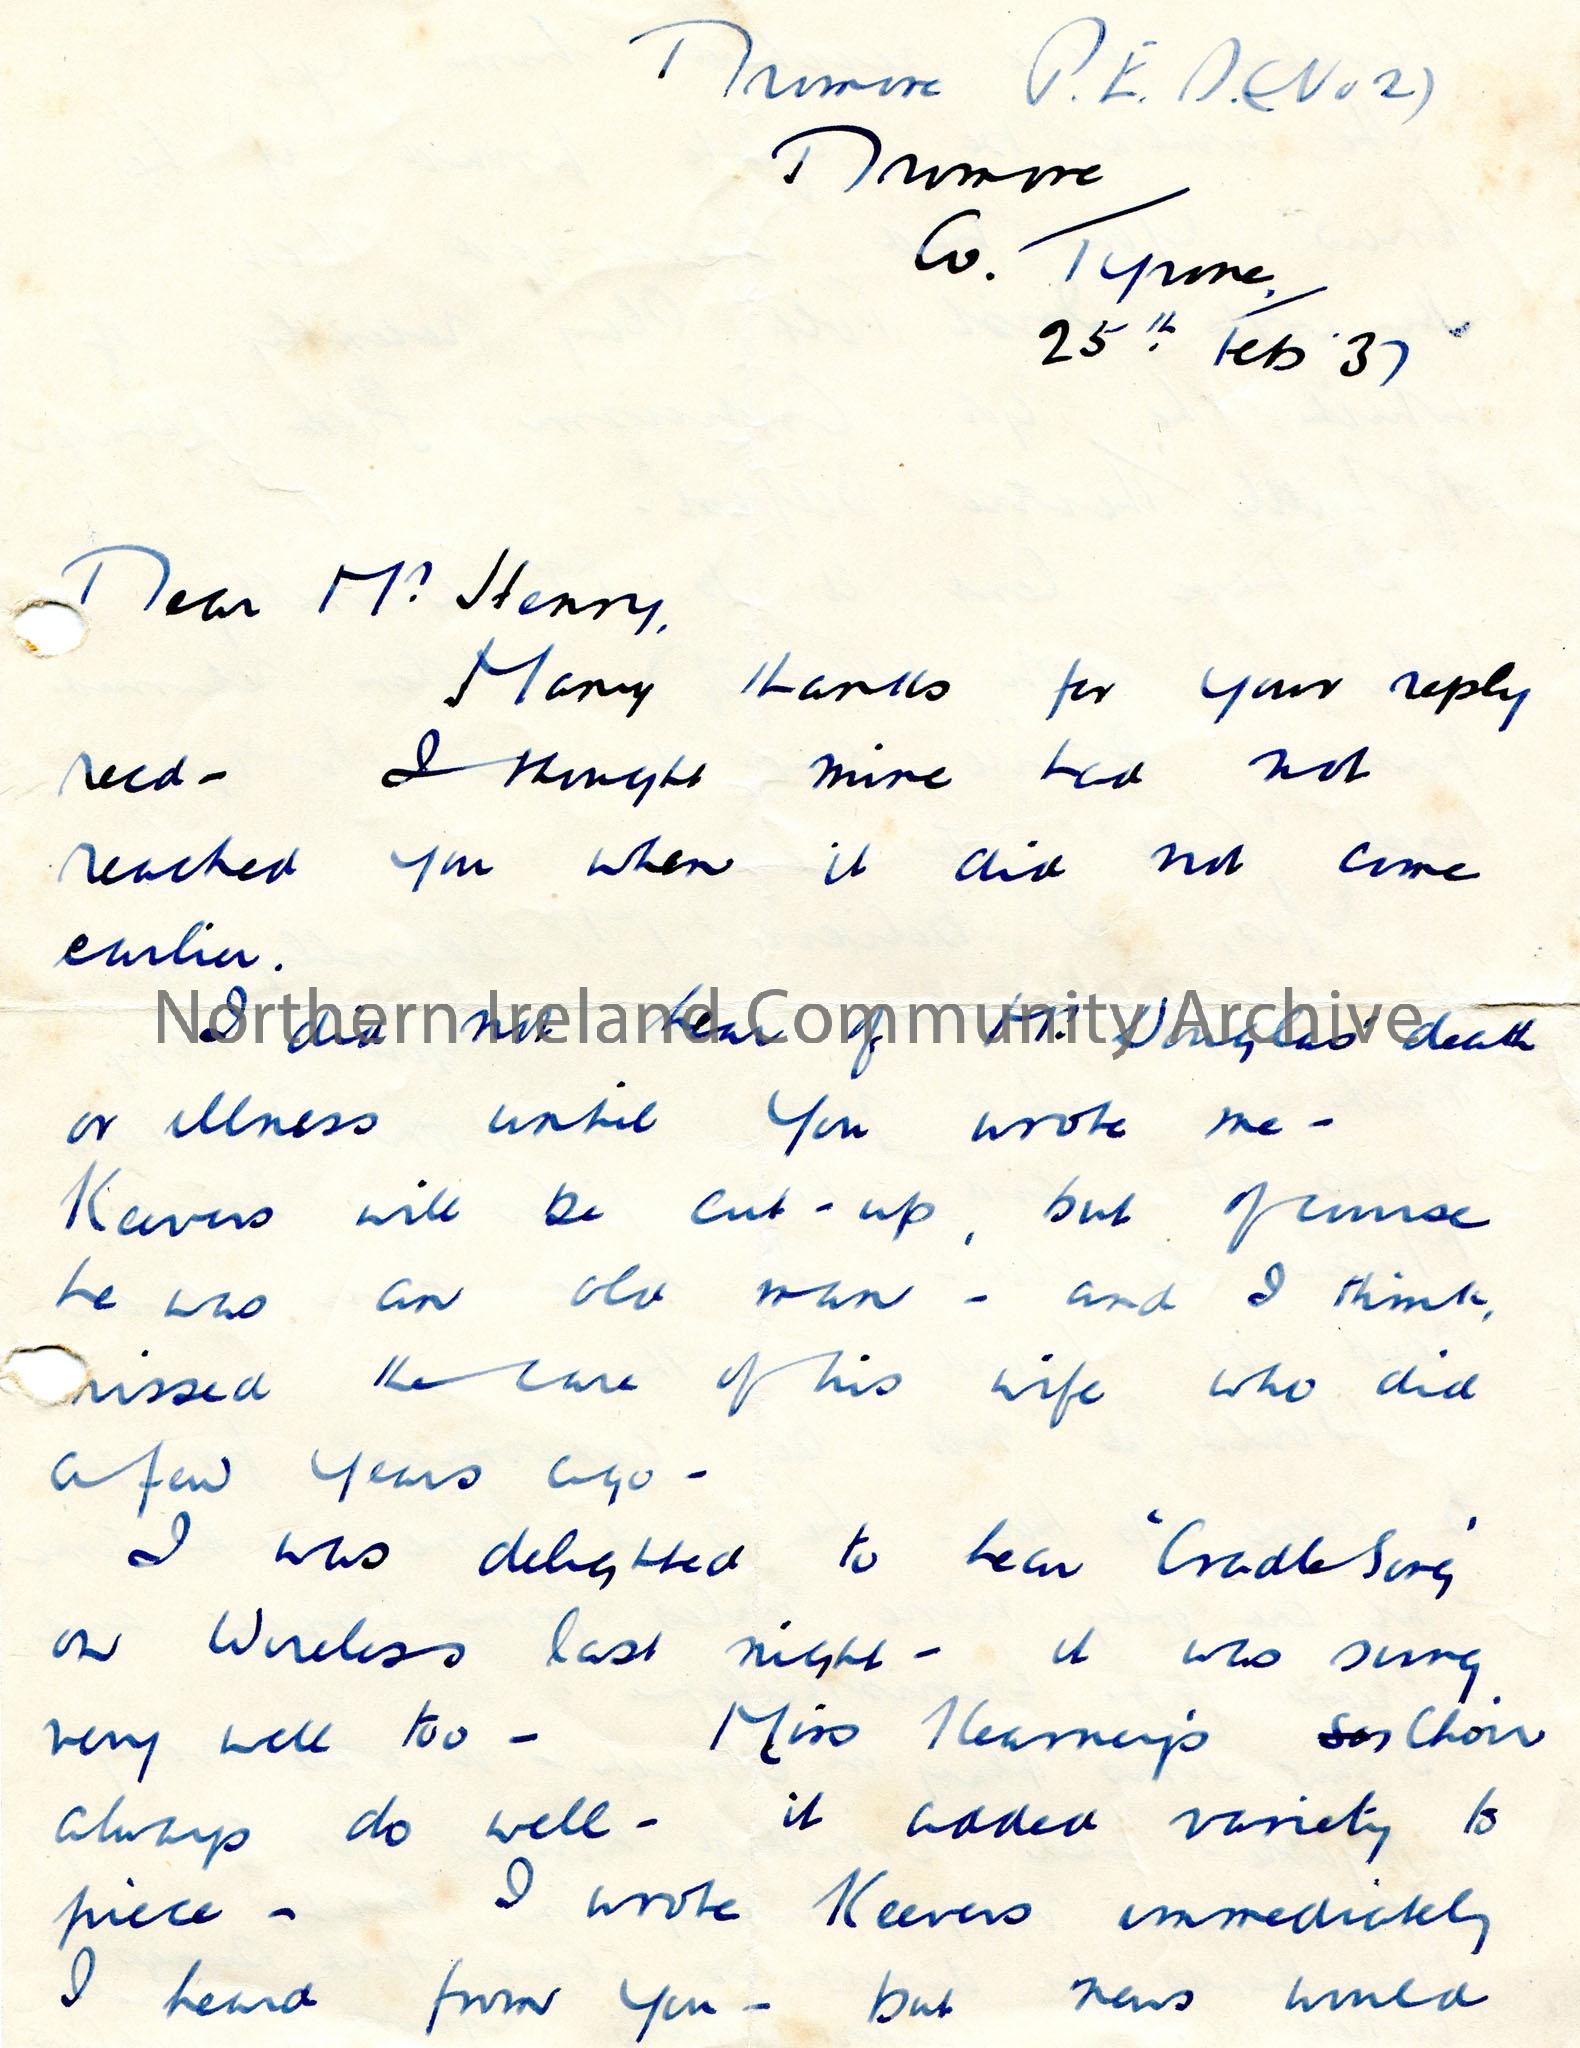 Dromore P.E.S. (No 2)
Dromore
Co. Tyrone,
25th Feb '37
Dear Mr Henry,
Many thanks for your reply
recd - I thought mine had not
reached you when it did not come
earlier.
Northern Ireland Community Archive
I did not hear of Mr. Douglas' death
or illness until you wrote me -
Keevers will be cut-up, but of course
he was an old man - and I think,
missed the care of his wife who did
a few years ago -
I was delighted to hear 'Cradle Song'
on Wireless last night - it was sung
very well too - Miss Kearney's Choir
always do well - it added variety to
piece - I wrote Keevers immediately
I heard from you - but news would